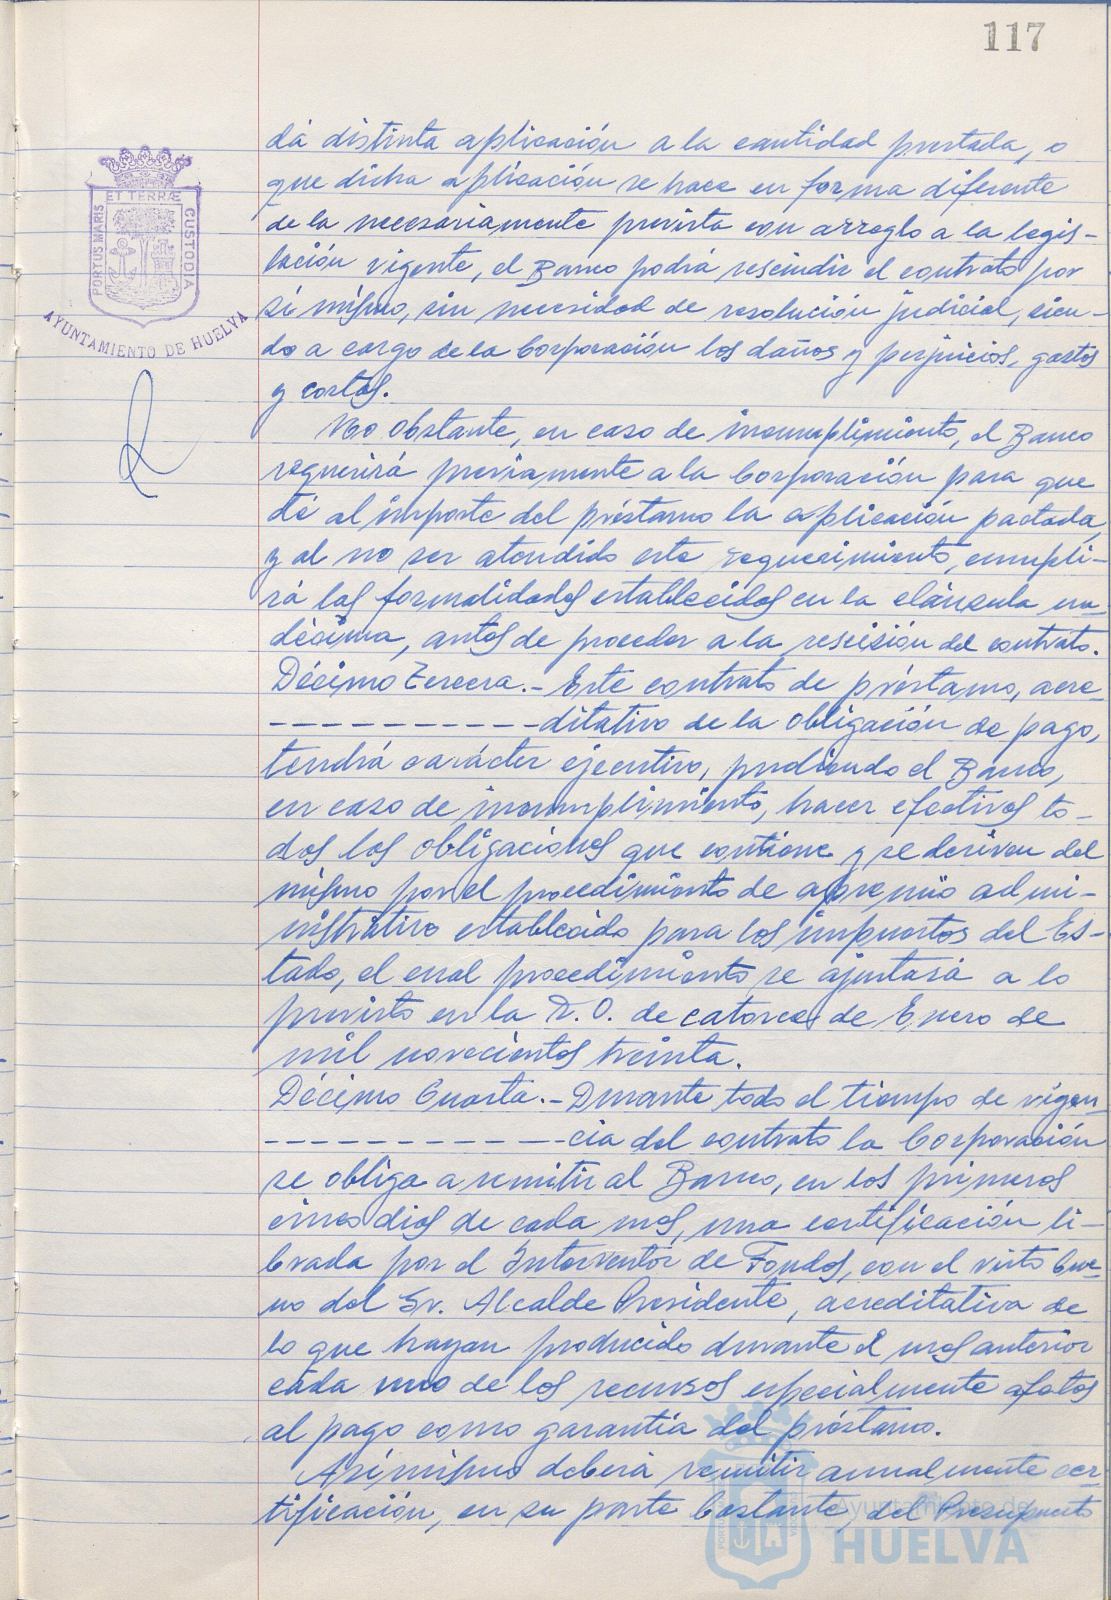 117
dá distinta aplicación a la cantidad prestada, o
que dicha aplicación se hace en forma diferente
de la necesariamente prevista con arreglo a la legis-
lación vigente, el Banco podrá rescindir el contrato por
sí mismo, sin necesidad de resolución judicial, sien-
do a cargo de la Corporación los daños y perjuicios, gastos
y costas.
No obstante, en caso de incumplimiento, el Banco
requerirá previamente a la Corporación para que
dé al importe del préstamo la aplicación pactada,
y al no ser atendido este requerimiento, cumpli-
rá las formalidades establecidas en la cláusula un-
décima, antes de proceder a la rescisión del contrato.
Décimo Tercera.- Este contrato de préstamo, acre-
-----------ditativo de la obligación de pago,
tendrá carácter ejecutivo, pudiendo el Banco,
en caso de incumplimiento, hacer efectivas to-
das las obligaciones que contiene y se deriven del
mismo por el procedimiento de apremio admi-
nistrativo establecido para los impuestos del Es-
tado, el cual procedimiento se ajustará a lo
previsto en la R.O. de catorce de Enero de
mil novecientos treinta.
Décimo Cuarta.- Durante todo el tiempo de vigen-
-----------cia del contrato la Corporación
se obliga a remitir al Banco, en los primeros
cinco días de cada mes, una certificación li-
brada por el Interventor de Fondos, con el visto bue-
no del Sr. Alcalde Presidente, acreditativa de
lo que hayan producido durante el mes anterior
cada uno de los recursos especialmente afectos
al pago como garantía del préstamo.
Asimismo deberá remitir anualmente cer-
tificación, en su parte bastante, del Presupuesto
PORTUS MARIS
ET TERRÆ
CUSTODIA
AYUNTAMIENTO DE HUELVA
Ayuntamiento de
HUELVA